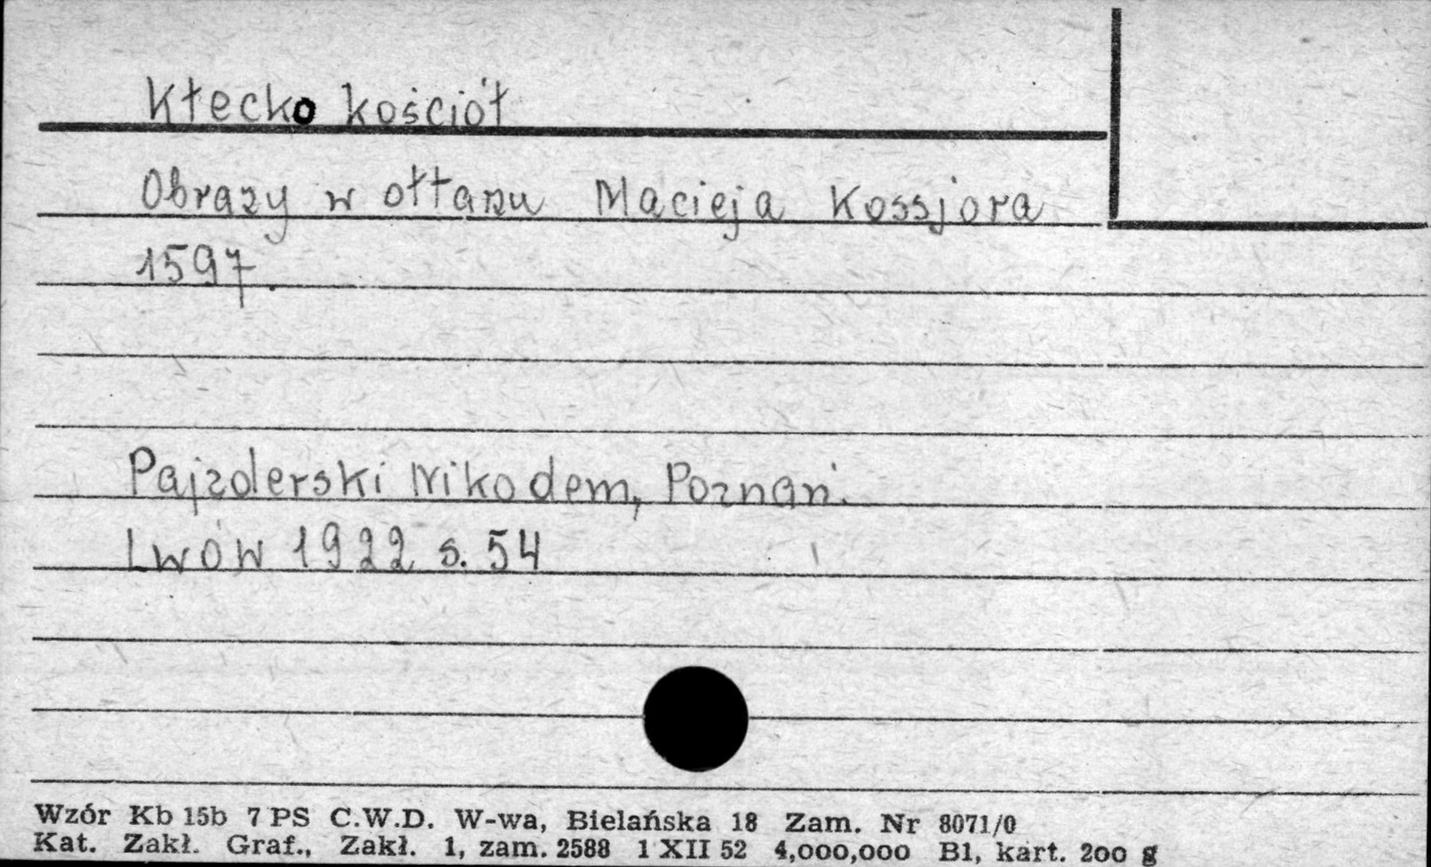 Kłecko kościół
Obrazy w ołtarzu Macieja Kossjora
1597.
Pajzderski Nikodem, Poznań.
Lwów 1922 s. 54
Wzór Kb 15b 7 PS C.W.D. W-wa, Bielańska 18 Zam. Nr 8071/0
Kat. Zakł. Graf., Zakł. 1, zam. 2588 1 XII 52 4,000,000 B1, kart. 200 g